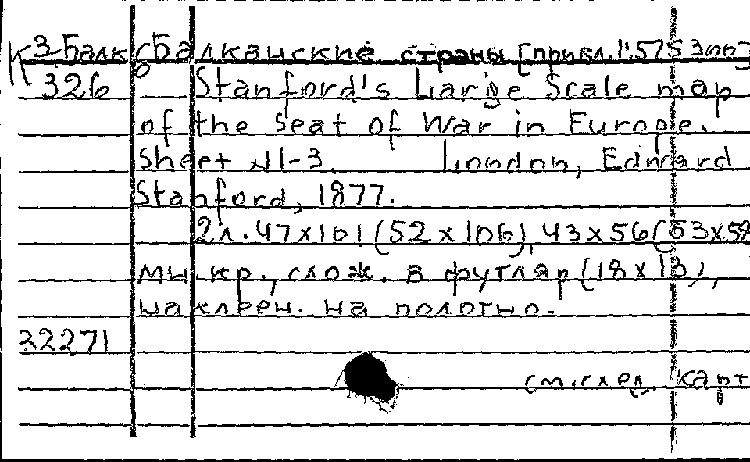 К 3-Балк Балканские страны [прибл. 1:575 300]
326 Stanford's Large Scale map
of the Seat of War in Europe.
Sheet N1-3. London, Edward
Stanford, 1877.
2л. 47х101 (52х106), 43х56 (53х58
мн. кр., слож. в футляр (18х13),
наклеен. на полотно.
22271
см. схем. карт